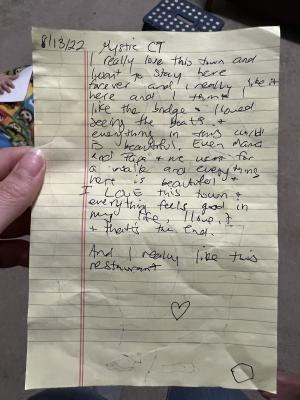 8/13/22 Mystic CT
I really love this town and
want to stay here
forever and I really like it
here and I think I
like the bridge + I loved
seeing the boats, +
everything in this world
is beautiful. Even Mama
and Papa + we went for
a walk and everything
here is beautiful +
I LOVE this town +
everything feels good in
my life, I love it
+ that's the end.
And I really like this
restaurant